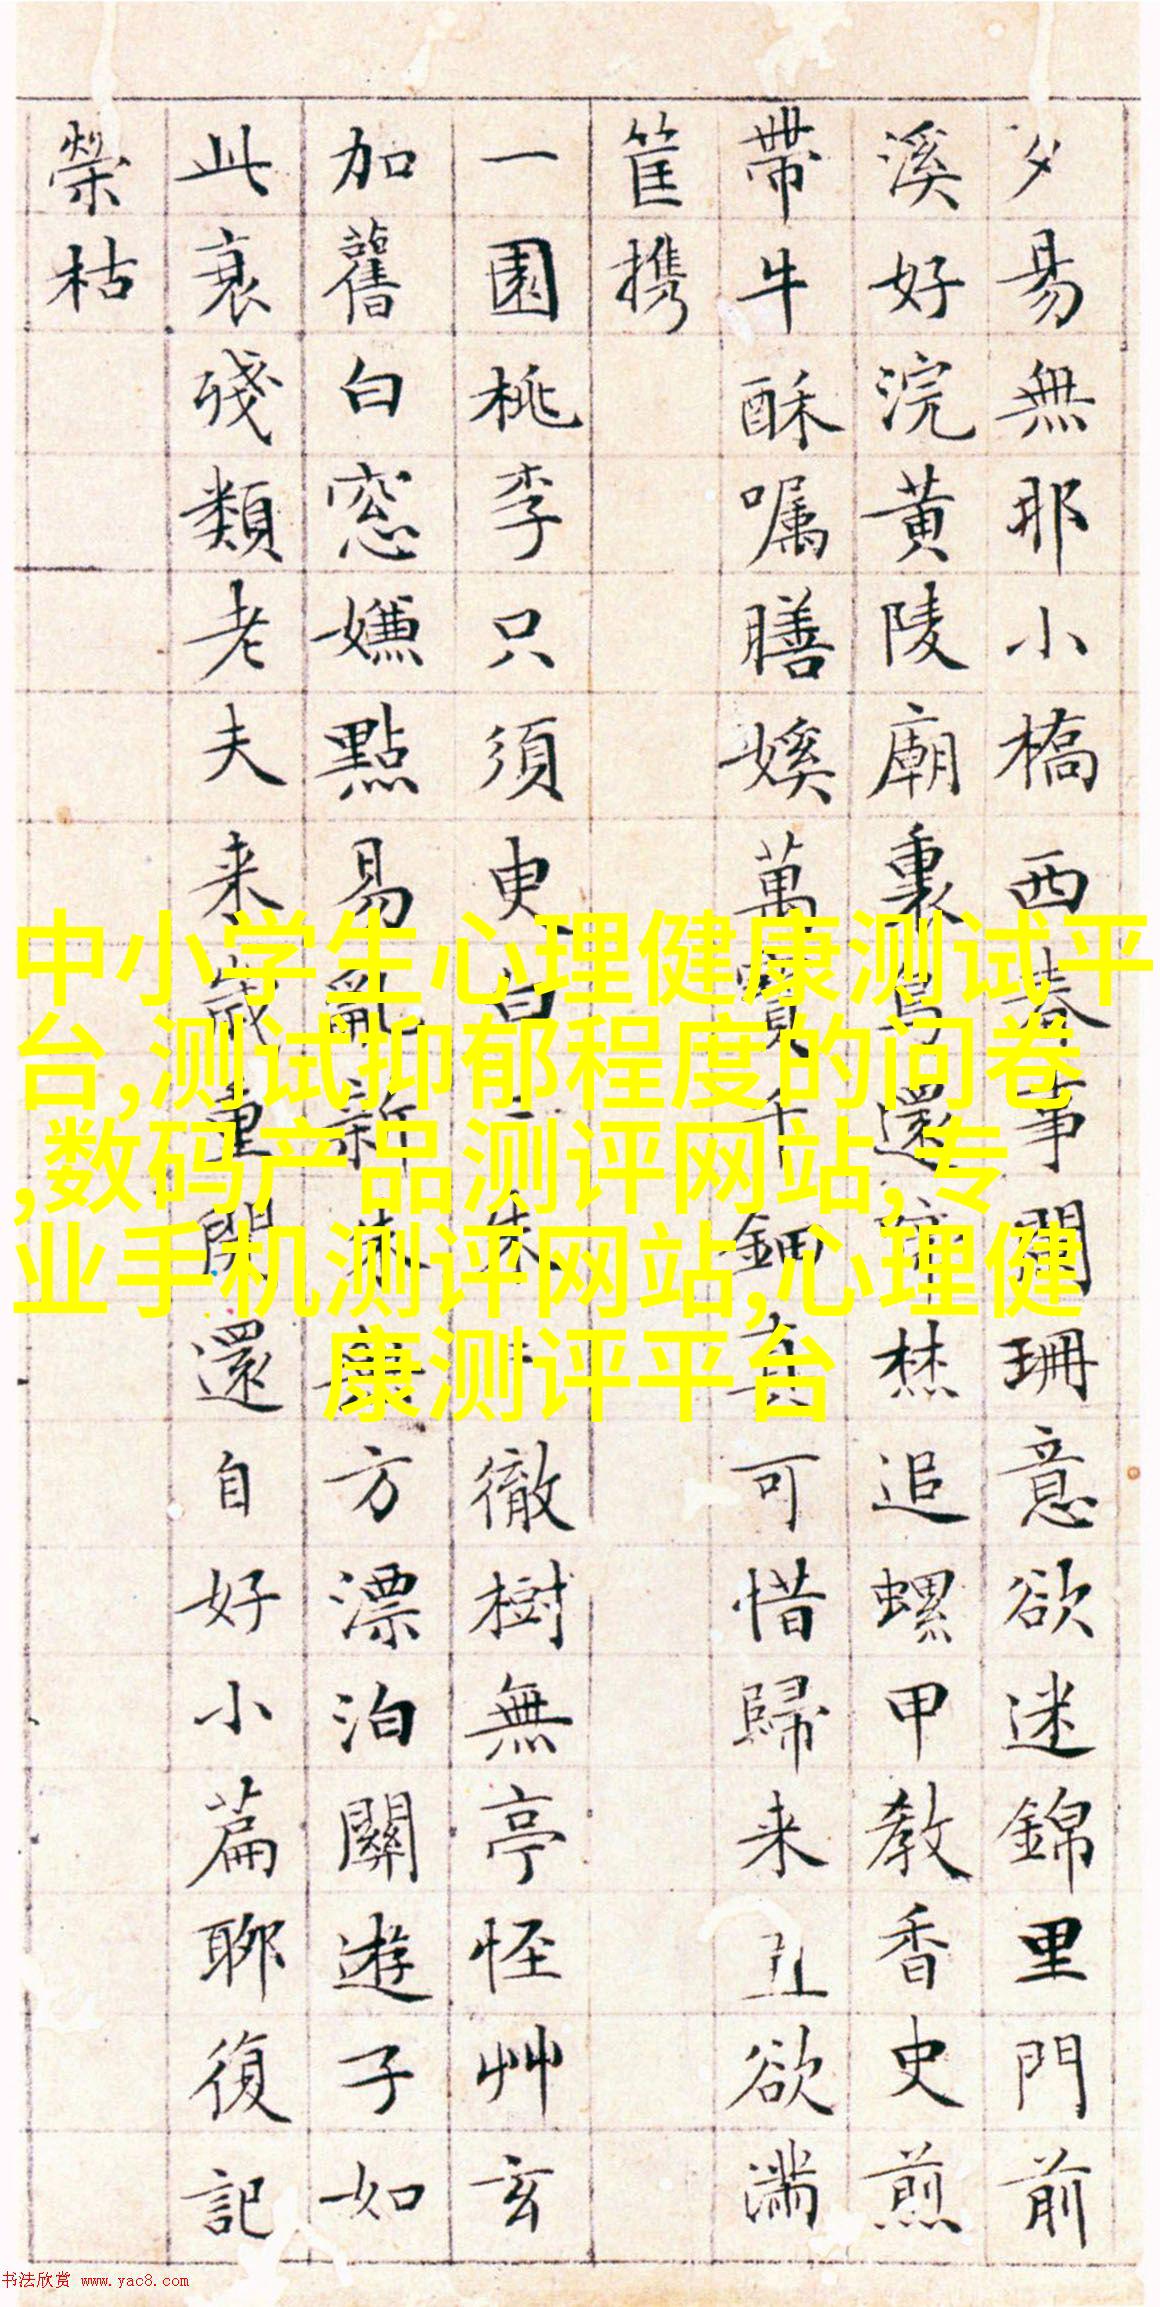 夕易無耶小橋西春事闌珊意欲迷錦里門前
溪好浣黄陵廟裏鳥還啼椒追螺甲教香史煎
帶牛酥嘱膳媄萬寶千鈿真可惜歸来丑欲満
筐携
一園桃李只須更白白朱朱徹樹無亭怪艸玄
加舊白窓嫌點易亂新硃康方漂泊關遊子如
此衰残類老夫来歲重開還自好小篇聊復記
榮枯
中小学生心理健康测试平
台,测试抑郁程度的问卷
,数码产品测评网站,专
业手机测评网站,心理健
康测评平台
书法欣赏 www.yac8.com